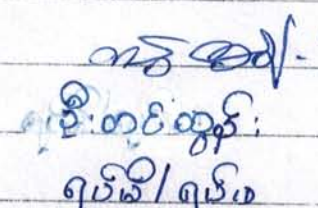 ဦးတင်ထွန်း
ရပ်မိ/ရပ်ဖ